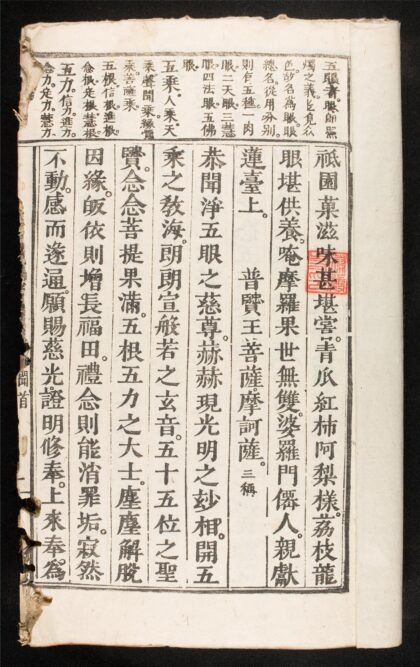 五眼者眼卽照
燭之義
色故名爲眼眼
總名從用分別
則有五種一肉
眼二天眼三慧
眼四法眼五佛
眼
五乘人乘天
乘聲聞乘緣覺
乘菩薩乘
五根信根進根
念根定根慧根
五力信力進力
念力定力慧力
祇園菓滋味甚堪嘗。青瓜紅柿阿梨樣。荔枝龍
眼堪供養。唵摩羅果世無雙。婆羅門僊人。親獻
蓮臺上。 普賢王菩薩。摩訶薩。三稱
恭聞淨五眼之慈尊。赫赫現光明之玅相。開五
乘之敎海。朗朗宣般若之玄音。五十五位之聖
賢。念念菩提果滿。五根五力之大士。塵塵解脫
因緣。皈依則增長福田。禮念則能消罪垢。寂然
不動。感而遂通。願賜慈光。證明修奉。上來奉爲
聞首